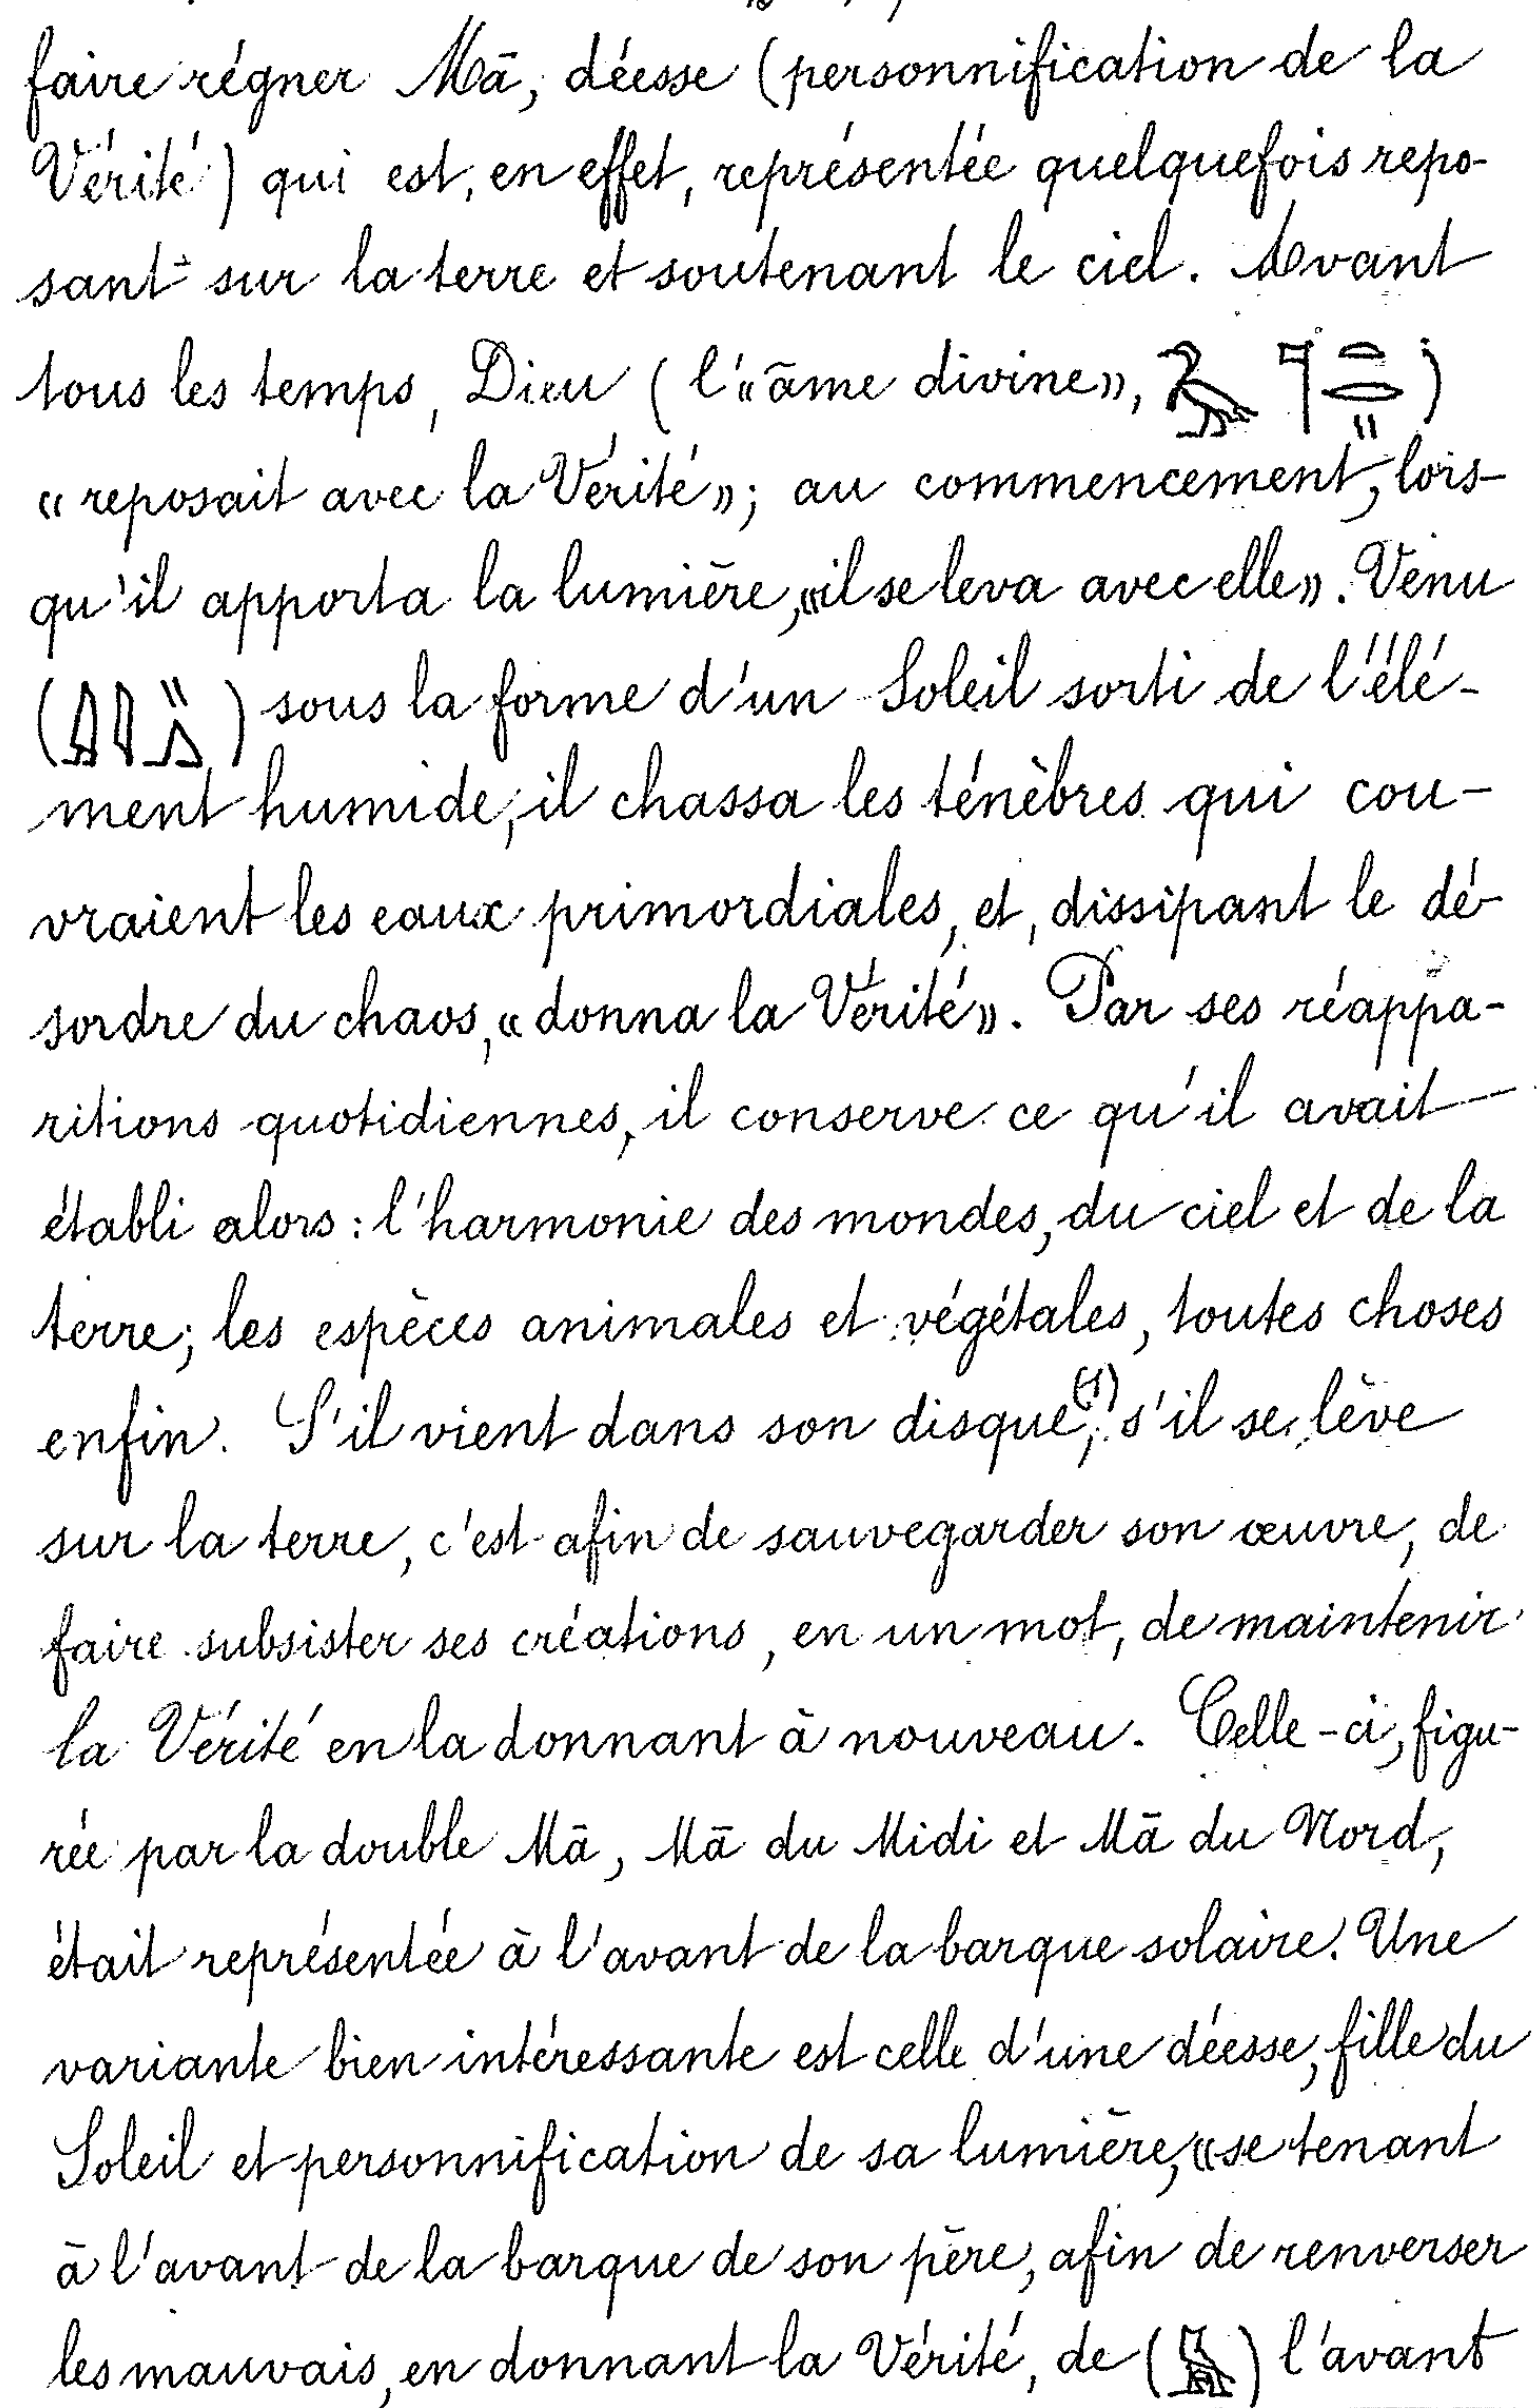 faire régner Mā, déesse (personnification de la
Vérité) qui est, en effet, représentée quelquefois repo-
sant sur la terre et soutenant le ciel. Avant
tous les temps, Dieu (l'«âme divine», )
«reposait avec la Vérité»; au commencement, lors-
qu'il apporta la lumière, «il se leva avec elle». Venu
( ) sous la forme d'un Soleil sorti de l'élé-
ment humide, il chassa les ténèbres qui cou-
vraient les eaux primordiales, et, dissipant le dé-
sordre du chaos, «donna la Vérité». Par ses réappa-
ritions quotidiennes, il conserve ce qu'il avait
établi alors: l'harmonie des mondes, du ciel et de la
terre; les espèces animales et végétales, toutes choses
enfin. S'il vient dans son disque(1), s'il se lève
sur la terre, c'est afin de sauvegarder son œuvre, de
faire subsister ses créations, en un mot, de maintenir
la Vérité en la donnant à nouveau. Celle-ci, figu-
rée par la double Mā, Mā du Midi et Mā du Nord,
était représentée à l'avant de la barque solaire. Une
variante bien intéressante est celle d'une déesse, fille du
Soleil et personnification de sa lumière, «se tenant
à l'avant de la barque de son père, afin de renverser
les mauvais, en donnant la Vérité, de ( ) l'avant